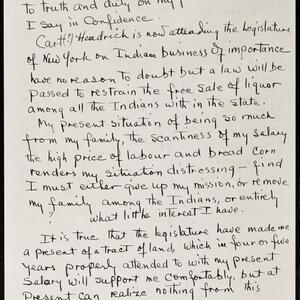 to truth and duty on my p
I say in Confidence.
Capt. Hendrick is now attending the legislature
of New York on Indian business of importance
have no reason to doubt but a law will be
passed to restrain the free sale of liquor
among all the Indians with in the state.
My present situation of being so much
from my family, the scantiness of my salary
the high price of labour and bread corn
renders my situation distressing — find
I must either give up my mission, or remove
my family among the Indians, or entirely
? what little interest I have.
It is true that the legislature have made me
a present of a tract of land, which in four or five
years properly attended to with my present
Salary will support me comfortably, but at
Present can realize nothing from this